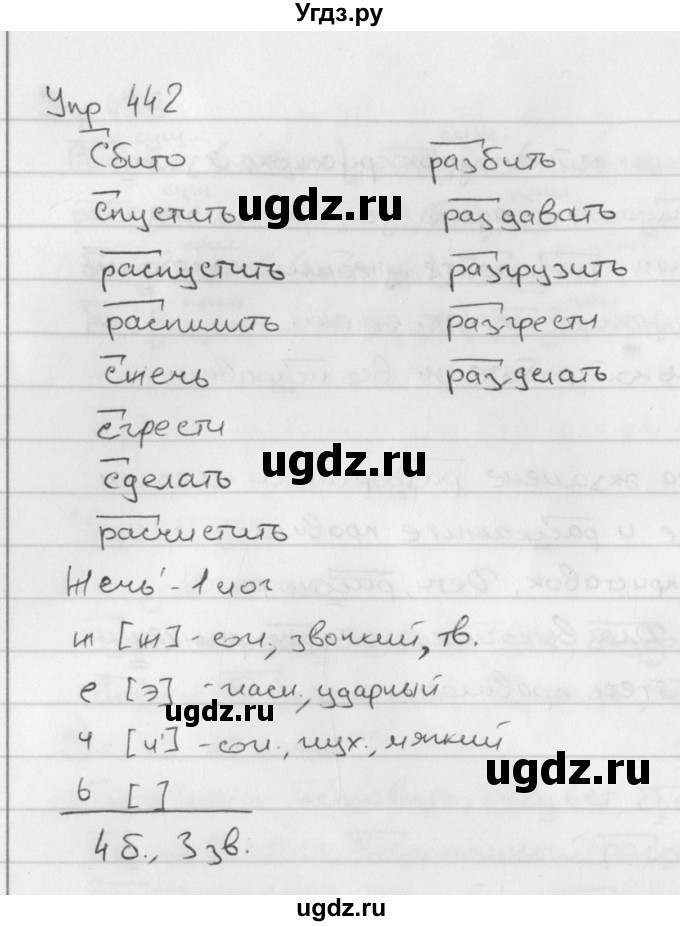 Угдз.ру
Упр 442
Сбито разбить
спустить раздавать
распустить разгрузить
распилить разгрести
сжечь разделать
сгрести
сделать
расчистить
Жечь - 1 слог
ж [ж] - сог., звонкий, тв.
е [э] - гласн., ударный
ч [ч'] - сог., глух., мягкий
ь [ ]
4 б., 3 зв.
ugdz.ru
ugdz.ru
ugdz.ru
ugdz.ru
ugdz.ru